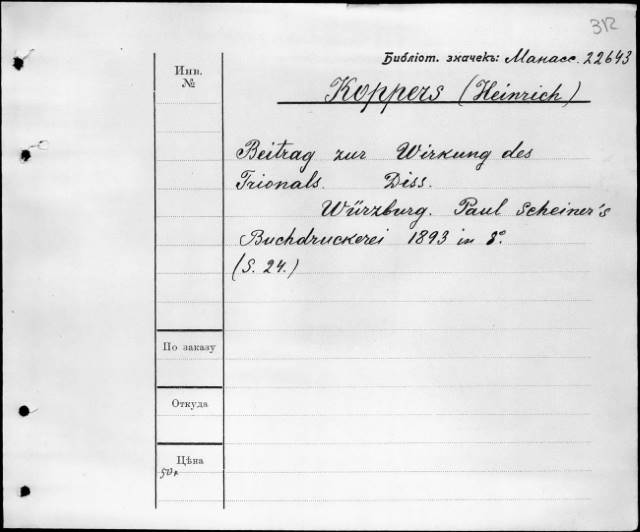 312
Библіот. значекъ: Манасс. 22643
Инв.
№
Koppers (Heinrich)
Beitrag zur Wirkung des
Trionals. Diss.
Würzburg. Paul Scheiner's
Buchdruckerei 1893 in 8°.
(S. 24.)
По заказу
Откуда
Цѣна
50 к